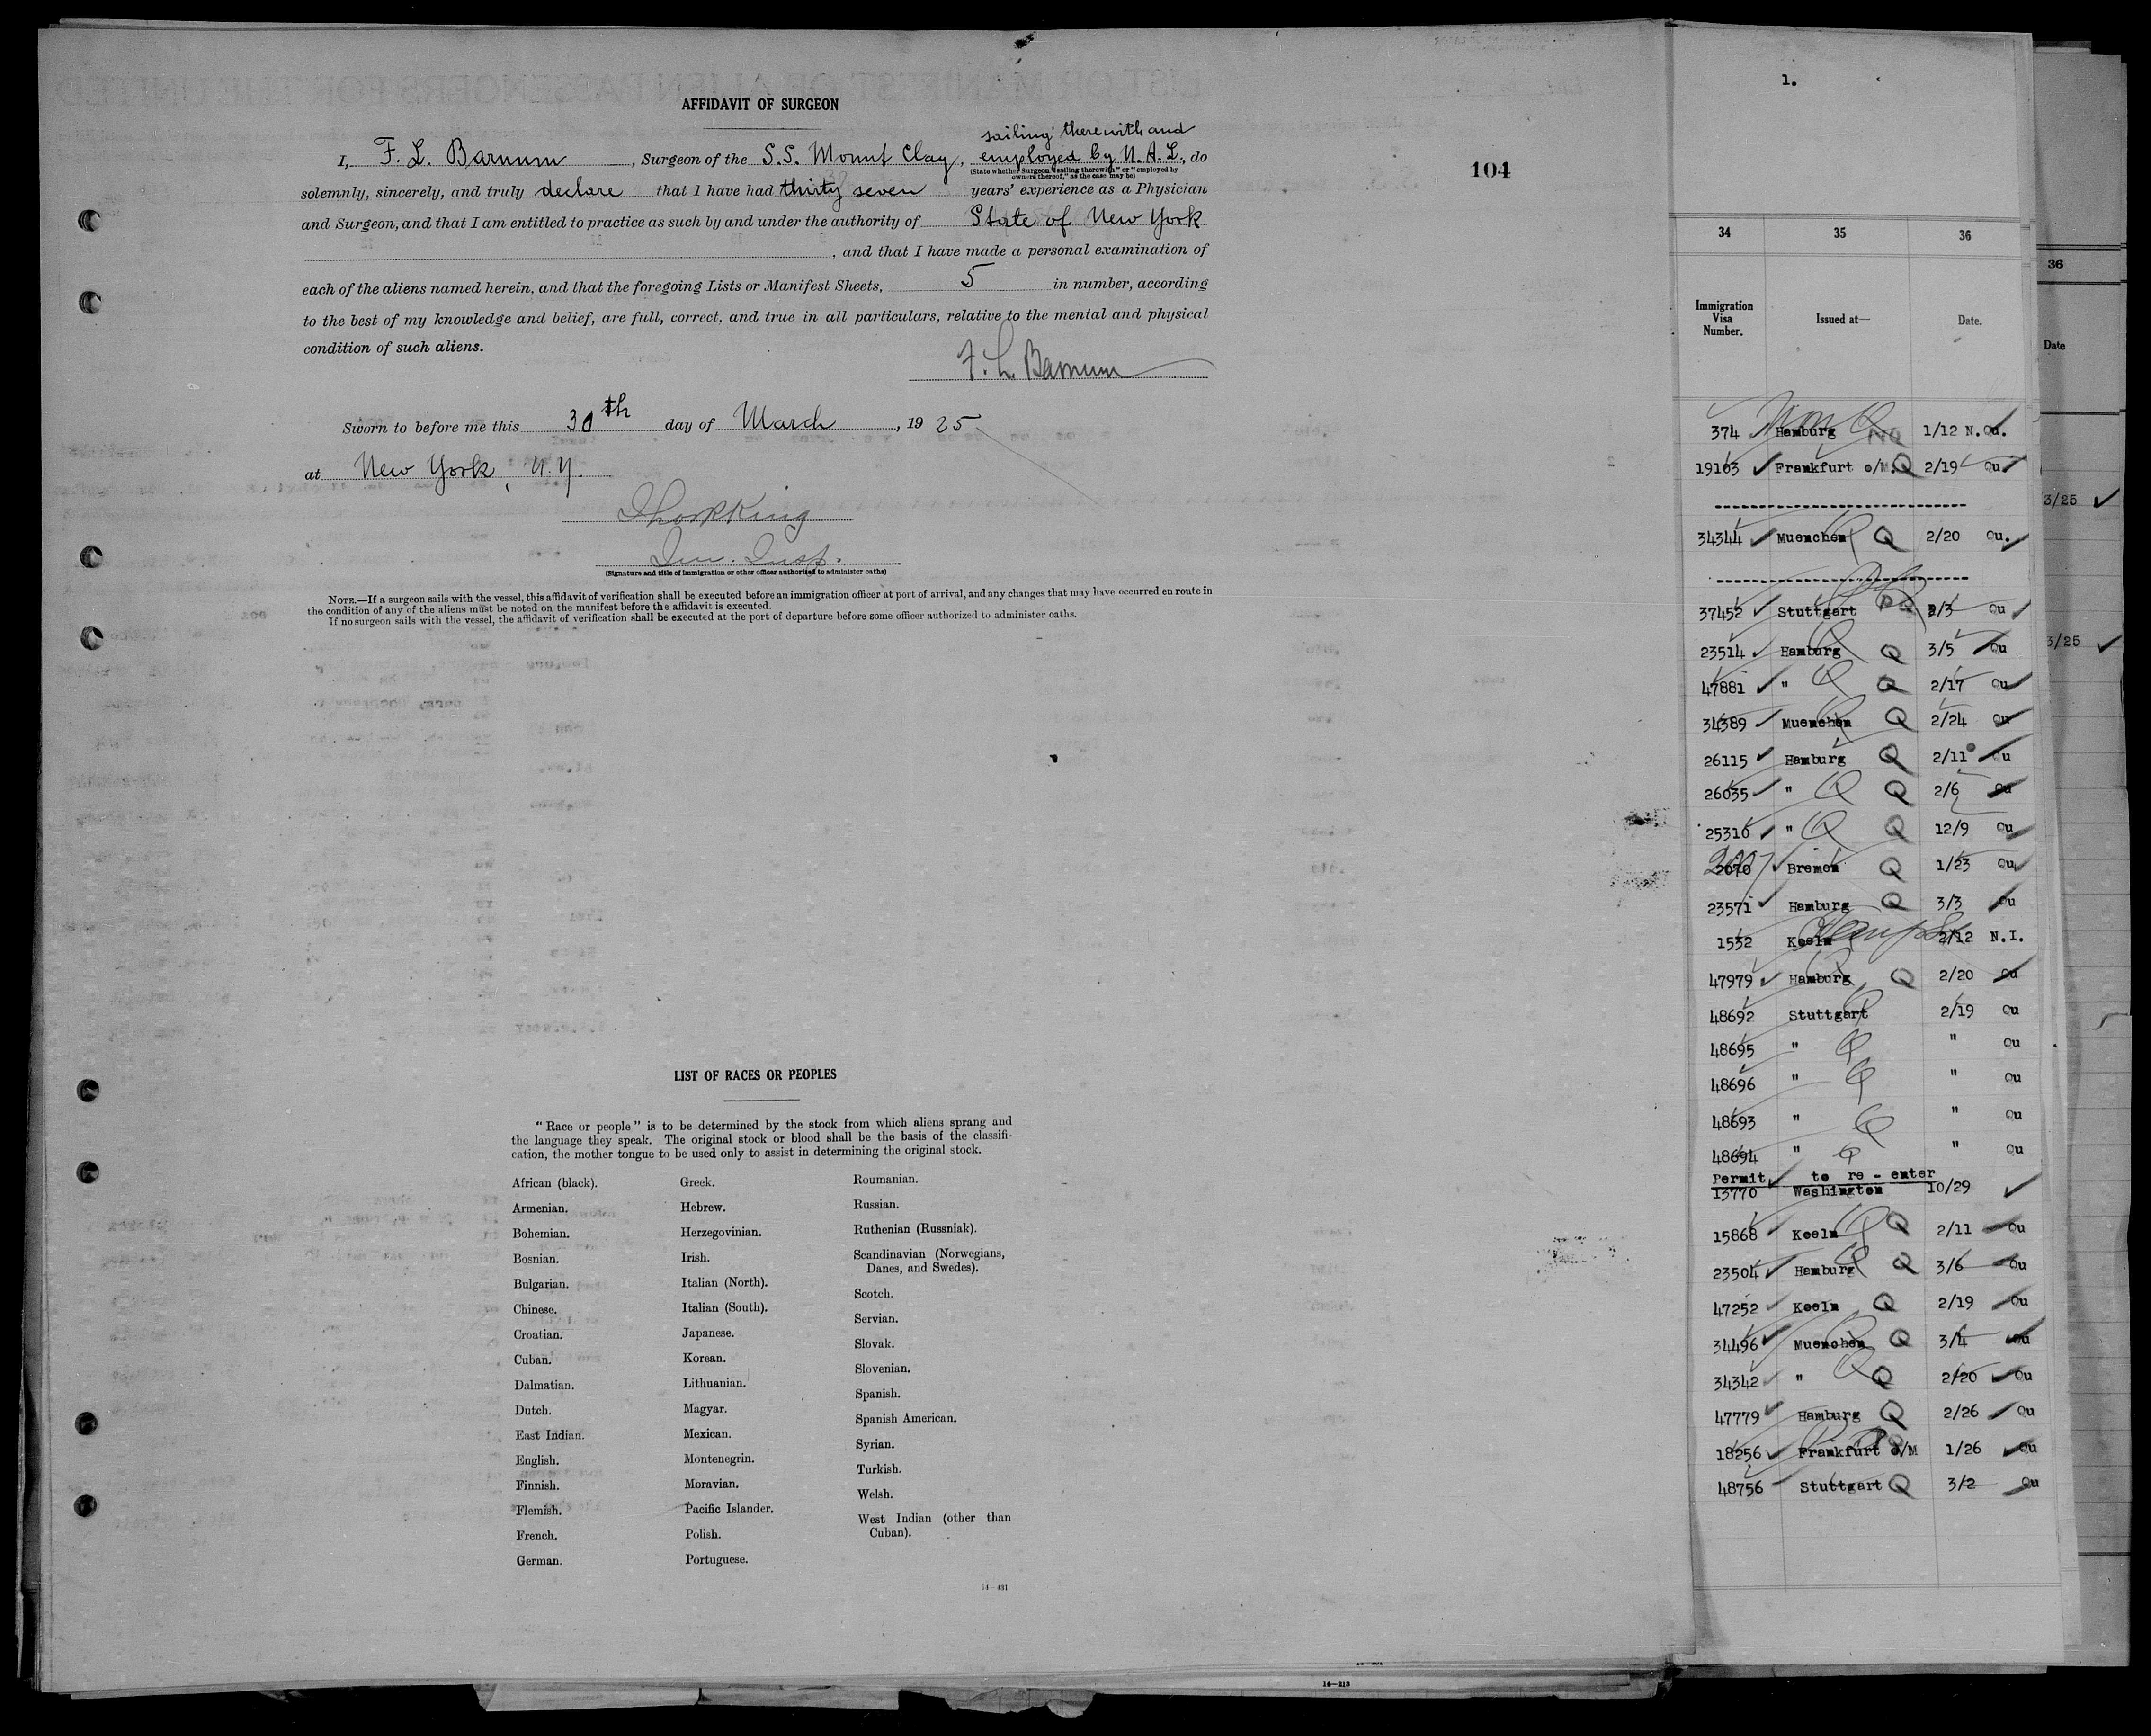 AFFIDAVIT OF SURGEON
sailing therewith and
I, F. L. Barnum, Surgeon of the S.S. Mount Clay, employed by U. A. L., do
(State whether Surgeon "sailing therewith" or "employed by
owners thereof," as the case may be)
solemnly, sincerely, and truly declare that I have had thirty seven years' experience as a Physician
and Surgeon, and that I am entitled to practice as such by and under the authority of State of New York
, and that I have made a personal examination of
each of the aliens named herein, and that the foregoing Lists or Manifest Sheets, 5 in number, according
to the best of my knowledge and belief, are full, correct, and true in all particulars, relative to the mental and physical
condition of such aliens.
F. L. Barnum
Sworn to before me this 30th day of March, 1925
at New York, N.Y.
Imm. Insp.
(Signature and title of immigration or other officer authorized to administer oaths)
NOTE.—If a surgeon sails with the vessel, this affidavit of verification shall be executed before an immigration officer at port of arrival, and any changes that may have occurred en route in
the condition of any of the aliens must be noted on the manifest before the affidavit is executed.
If no surgeon sails with the vessel, the affidavit of verification shall be executed at the port of departure before some officer authorized to administer oaths.
104
LIST OF RACES OR PEOPLES
"Race or people" is to be determined by the stock from which aliens sprang and
the language they speak. The original stock or blood shall be the basis of the classifi-
cation, the mother tongue to be used only to assist in determining the original stock.
African (black).
Armenian.
Bohemian.
Bosnian.
Bulgarian.
Chinese.
Croatian.
Cuban.
Dalmatian.
Dutch.
East Indian.
English.
Finnish.
Flemish.
French.
German.
Greek.
Hebrew.
Herzegovinian.
Irish.
Italian (North).
Italian (South).
Japanese.
Korean.
Lithuanian.
Magyar.
Mexican.
Montenegrin.
Moravian.
Pacific Islander.
Polish.
Portuguese.
Roumanian.
Russian.
Ruthenian (Russniak).
Scandinavian (Norwegians,
Danes, and Swedes).
Scotch.
Servian.
Slovak.
Slovenian.
Spanish.
Spanish American.
Syrian.
Turkish.
Welsh.
West Indian (other than
Cuban).
14—431
14—213
1.
34 35 36
Immigration
Visa
Number.
Issued at—
Date.
374 Hamburg NQ 1/12 N.Qu.
19163 Frankfurt o/M. Q 2/19 Qu
34344 Muenchen Q 2/20 Qu.
37452 Stuttgart 3/3 Qu
23514 Hamburg Q 3/5 Qu
47881 " Q 2/17 Qu
34389 Muenchen Q 2/24 Qu
26115 Hamburg Q 2/11 Qu
26035 " Q 2/6 Qu
25310 " Q 12/9 Qu
2070 Bremen Q 1/23 Qu
23571 Hamburg Q 3/3 Qu
1532 Koeln 2/12 N.I.
47979 Hamburg Q 2/20 Qu
48692 Stuttgart Q 2/19 Qu
48695 " Q " Qu
48696 " Q " Qu
48693 " Q " Qu
48694 " Q " Qu
Permit to re-enter
13770 Washington 10/29
15868 Koeln Q 2/11 Qu
23504 Hamburg Q 3/6 Qu
47252 Koeln Q 2/19 Qu
34496 Muenchen Q 3/4 Qu
34342 " Q 2/20 Qu
47779 Hamburg Q 2/26 Qu
18256 Frankfurt o/M 1/26 Qu
48756 Stuttgart Q 3/2 Qu
36
Date
3/25
3/25